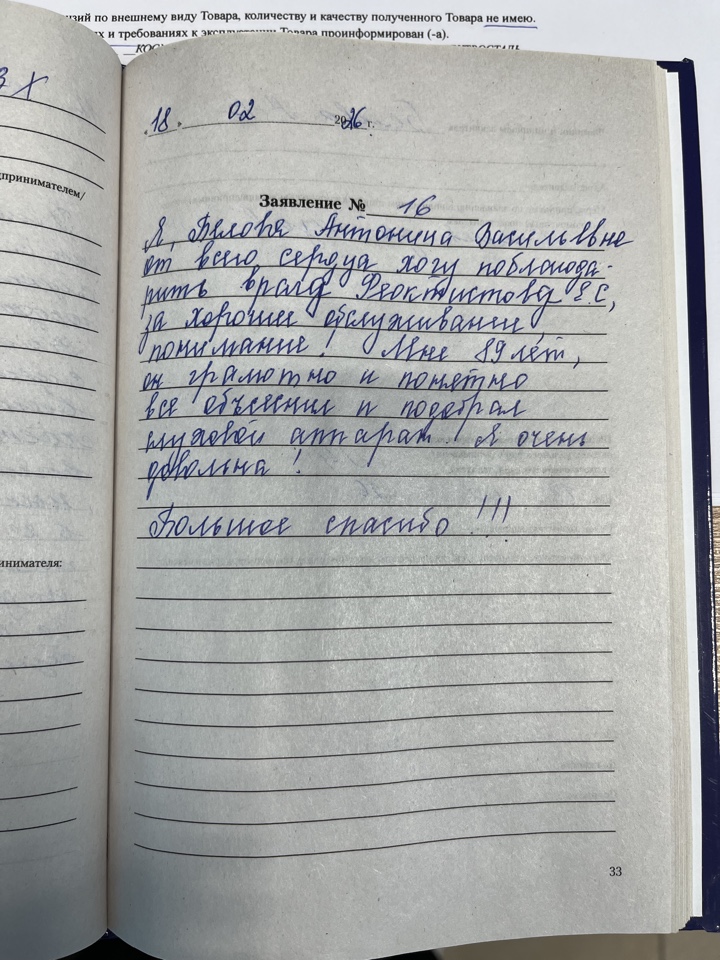 зий по внешнему виду Товара, количеству и качеству полученного Товара не имею.
х и требованиях к эксплуатации Товара проинформирован (-а).
18 02 2026 г.
дпринимателем/
Заявление № 16
Я, Белова Антонина Васильевне
от всего сердца хочу поблагода-
рить врача Феоктистова Е.С,
за хорошее обслуживание,
понимание! Мне 89 лет,
он грамотно и понятно
все объяснил и подобрал
слуховой аппарат! Я очень
довольна!
Большое спасибо!!!
инимателя:
33